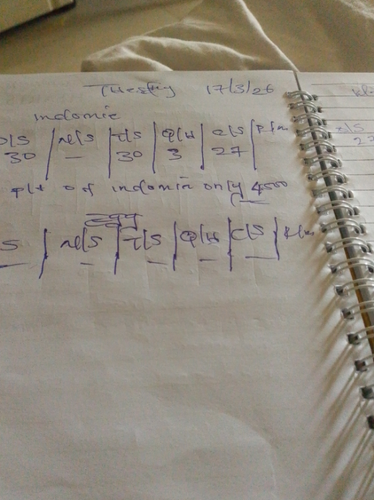 Tuesday 17/3/26
Indomie
O/S | N/S | T/S | Q/U | C/S
30 | — | 30 | 3 | 27
plt o of indomin only 4500
Egg
S | N/S | T/S | Q/U | C/S
— | — | — | — | —